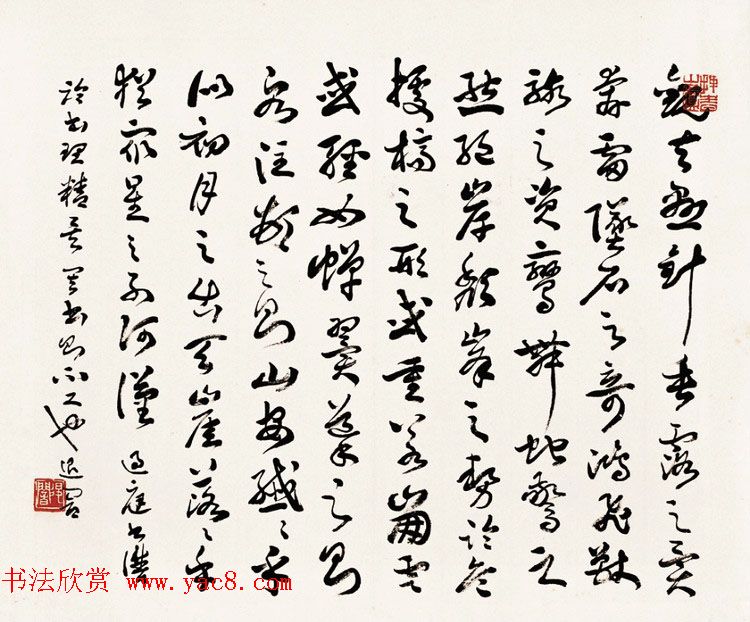 觀夫懸針垂露之異
奔雷墜石之奇鴻飛獸
駭之資鸞舞蛇驚之
態絕岸頹峰之勢臨危
據槁之形或重若崩雲
或輕如蟬翼導之則
泉注頓之則山安纖々乎
似初月之出天崖落々乎
猶眾星之列河漢 過庭書譜
書理精 書則不工也
书法欣赏 www.yac8.com